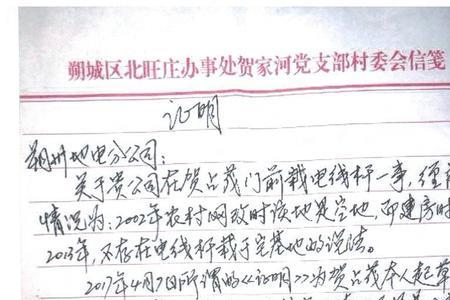 朔城区北旺庄办事处贺家河党支部村委会信笺
证明
朔州地电分公司:
关于贵公司在贺占茂门前栽电线杆一事,经
情况为:2002年农村网改时该地是空地,而建房时
2013年,不存在电线杆栽于宅基地的说法。
2017年4月7日所谓的《证明》为贺占茂本人起草